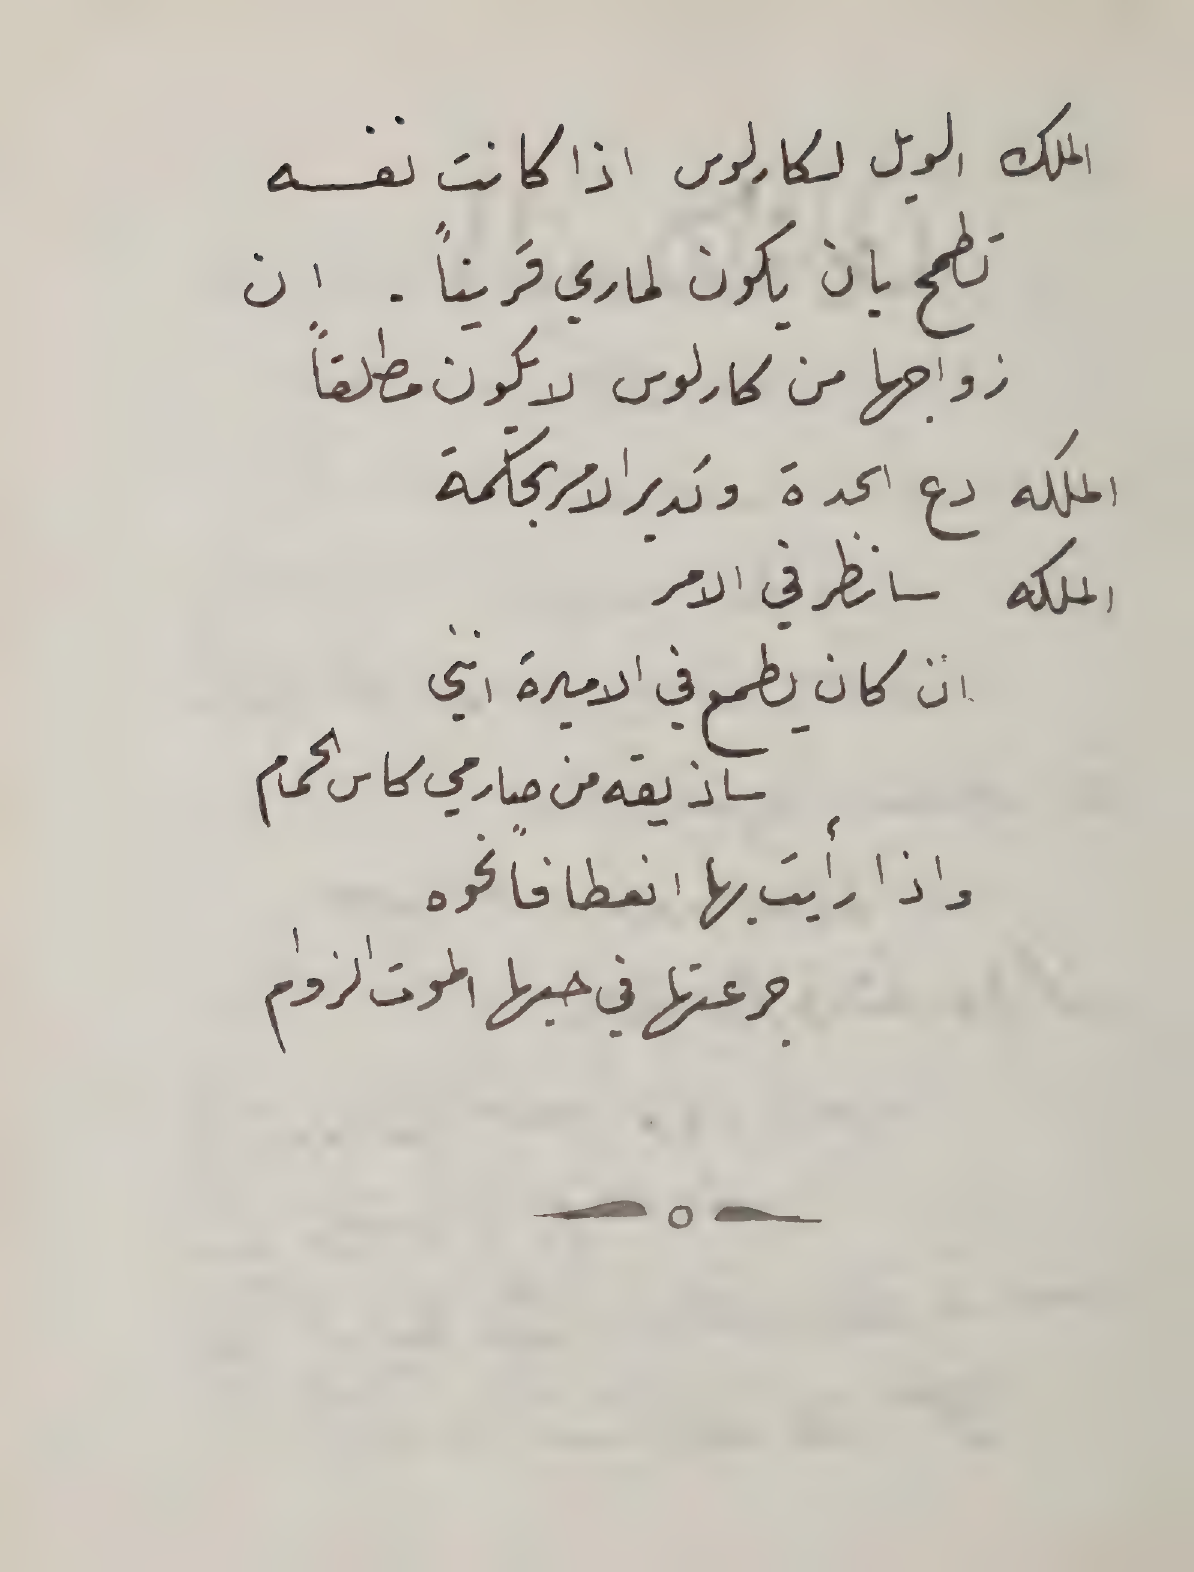 الملك الويل لكارلوس اذا كانت نفسه
تطمح بان يكون لماري قريناً . ان
زواجها من كارلوس لا يكون مطلقاً
الملكه دع الحدة وتدبر الامر بحكمة
الملكه سانظر في الامر
ان كان يطمع في الاميرة انني
ساذيقه من صارمي كاس الحمام
واذا رأيت بها انعطافاً نحوه
جرعتها في حبها الموت الزوام